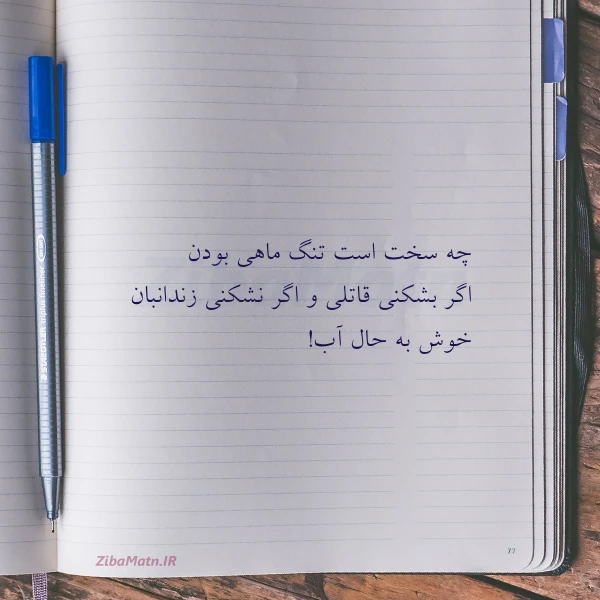 چه سخت است تنگ ماهی بودن
اگر بشکنی قاتلی و اگر نشکنی زندانبان
خوش به حال آب!
ZibaMatn.IR